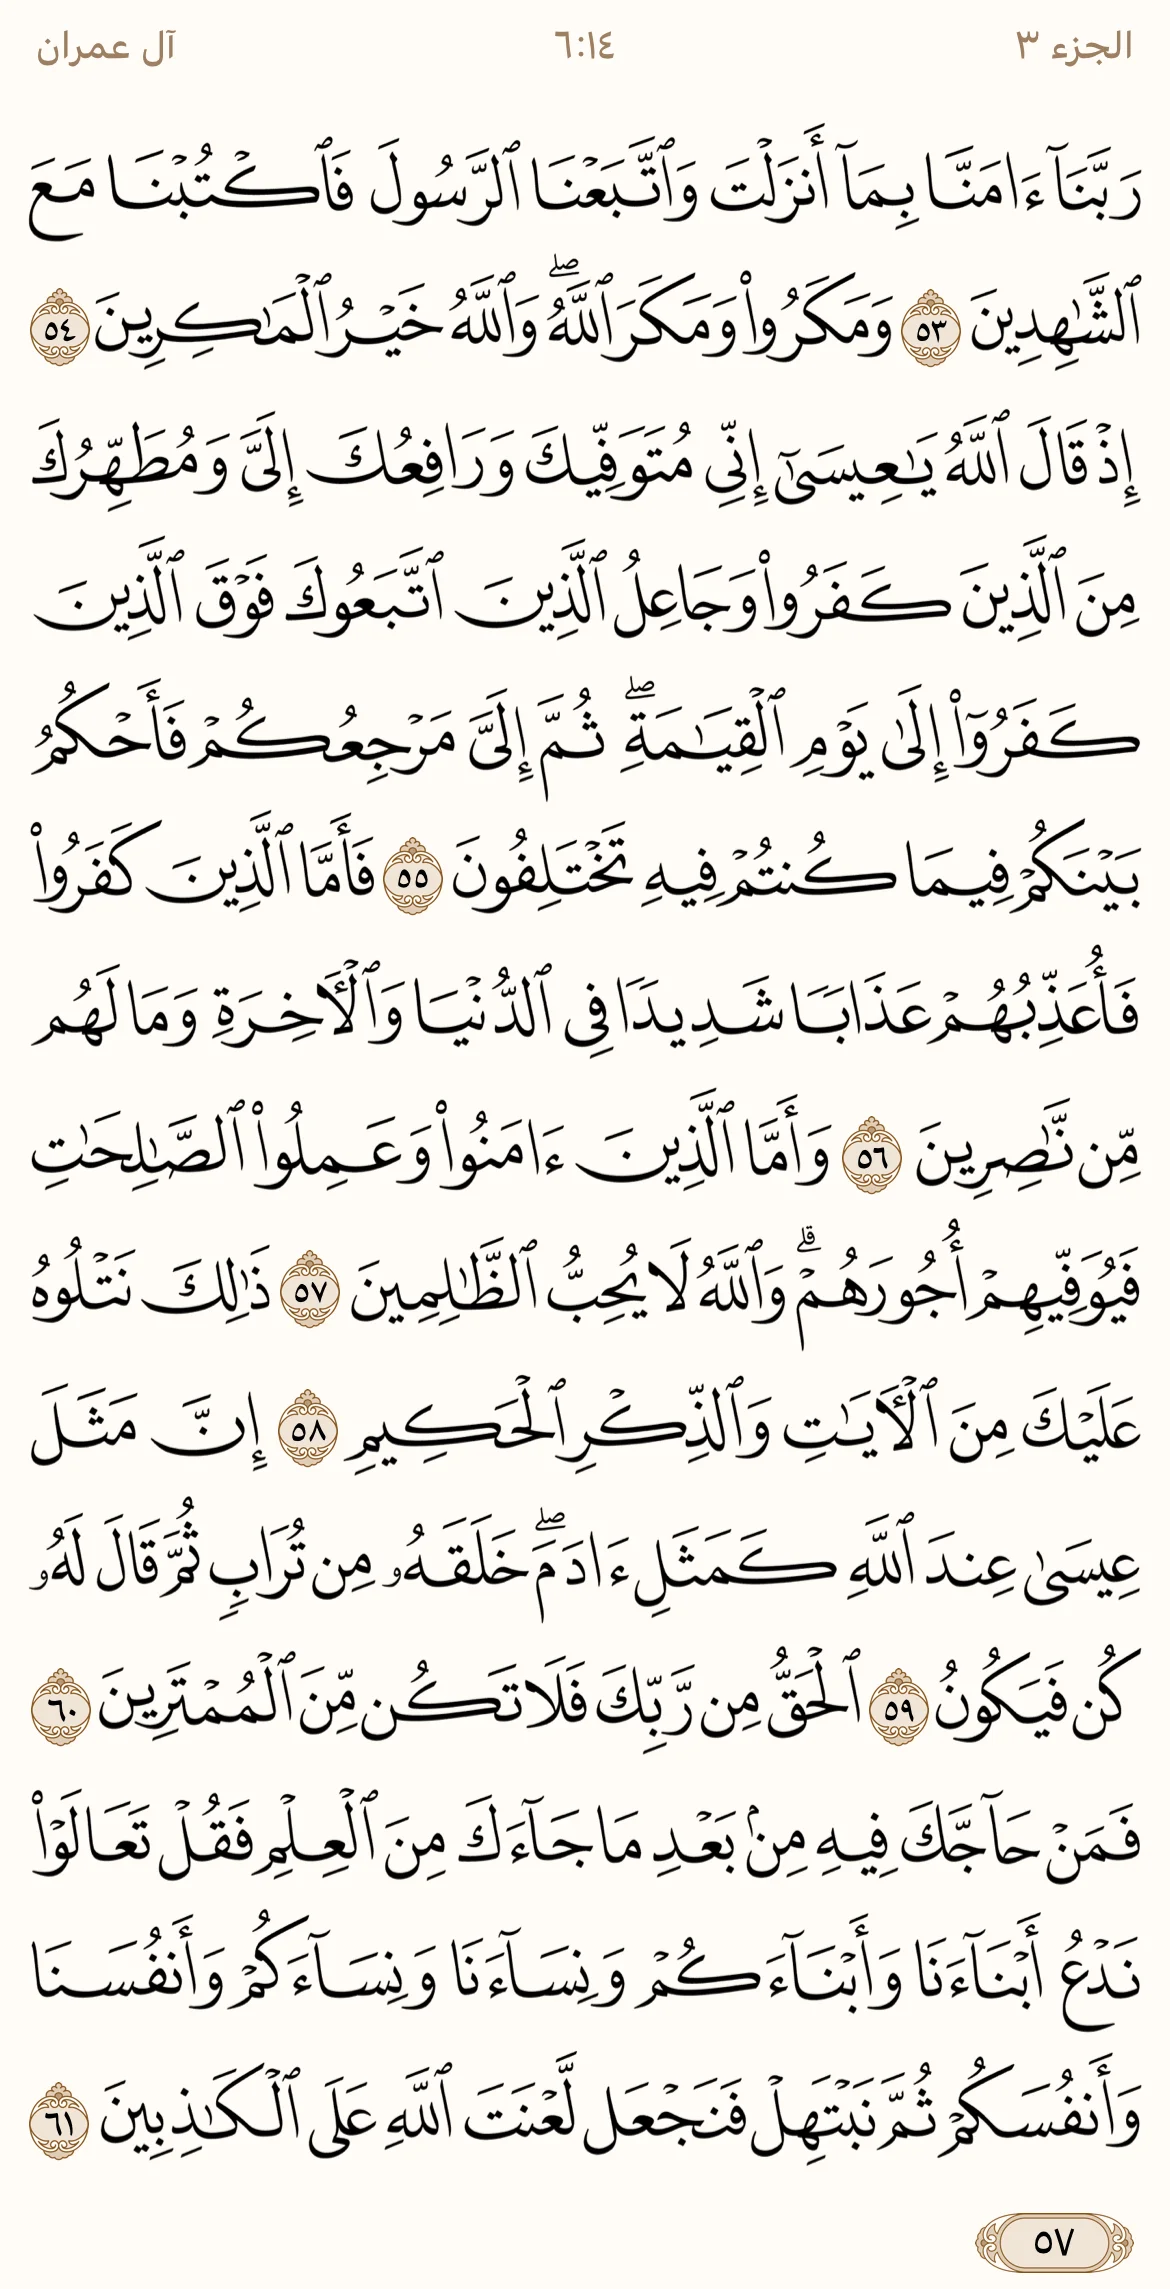 الجزء ٣ ٦:١٤ آل عمران
رَبَّنَآ ءَامَنَّا بِمَآ أَنزَلْتَ وَٱتَّبَعْنَا ٱلرَّسُولَ فَٱكْتُبْنَا مَعَ
ٱلشَّٰهِدِينَ ٥٣ وَمَكَرُوا۟ وَمَكَرَ ٱللَّهُۖ وَٱللَّهُ خَيْرُ ٱلْمَٰكِرِينَ ٥٤
إِذْ قَالَ ٱللَّهُ يَٰعِيسَىٰٓ إِنِّى مُتَوَفِّيكَ وَرَافِعُكَ إِلَىَّ وَمُطَهِّرُكَ
مِنَ ٱلَّذِينَ كَفَرُوا۟ وَجَاعِلُ ٱلَّذِينَ ٱتَّبَعُوكَ فَوْقَ ٱلَّذِينَ
كَفَرُوٓا۟ إِلَىٰ يَوْمِ ٱلْقِيَٰمَةِۖ ثُمَّ إِلَىَّ مَرْجِعُكُمْ فَأَحْكُمُ
بَيْنَكُمْ فِيمَا كُنتُمْ فِيهِ تَخْتَلِفُونَ ٥٥ فَأَمَّا ٱلَّذِينَ كَفَرُوا۟
فَأُعَذِّبُهُمْ عَذَابًا شَدِيدًا فِى ٱلدُّنْيَا وَٱلْـَٔاخِرَةِ وَمَا لَهُم
مِّن نَّٰصِرِينَ ٥٦ وَأَمَّا ٱلَّذِينَ ءَامَنُوا۟ وَعَمِلُوا۟ ٱلصَّٰلِحَٰتِ
فَيُوَفِّيهِمْ أُجُورَهُمْۗ وَٱللَّهُ لَا يُحِبُّ ٱلظَّٰلِمِينَ ٥٧ ذَٰلِكَ نَتْلُوهُ
عَلَيْكَ مِنَ ٱلْـَٔايَٰتِ وَٱلذِّكْرِ ٱلْحَكِيمِ ٥٨ إِنَّ مَثَلَ
عِيسَىٰ عِندَ ٱللَّهِ كَمَثَلِ ءَادَمَۖ خَلَقَهُۥ مِن تُرَابٍ ثُمَّ قَالَ لَهُۥ
كُن فَيَكُونُ ٥٩ ٱلْحَقُّ مِن رَّبِّكَ فَلَا تَكُن مِّنَ ٱلْمُمْتَرِينَ ٦٠
فَمَنْ حَآجَّكَ فِيهِ مِنۢ بَعْدِ مَا جَآءَكَ مِنَ ٱلْعِلْمِ فَقُلْ تَعَالَوْا۟
نَدْعُ أَبْنَآءَنَا وَأَبْنَآءَكُمْ وَنِسَآءَنَا وَنِسَآءَكُمْ وَأَنفُسَنَا
وَأَنفُسَكُمْ ثُمَّ نَبْتَهِلْ فَنَجْعَل لَّعْنَتَ ٱللَّهِ عَلَى ٱلْكَٰذِبِينَ ٦١
٥٧